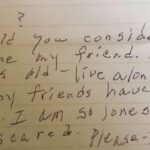 ?
ld you conside
me my friend.
s old - live alon
my friends have
. I am so lones
scared. Please